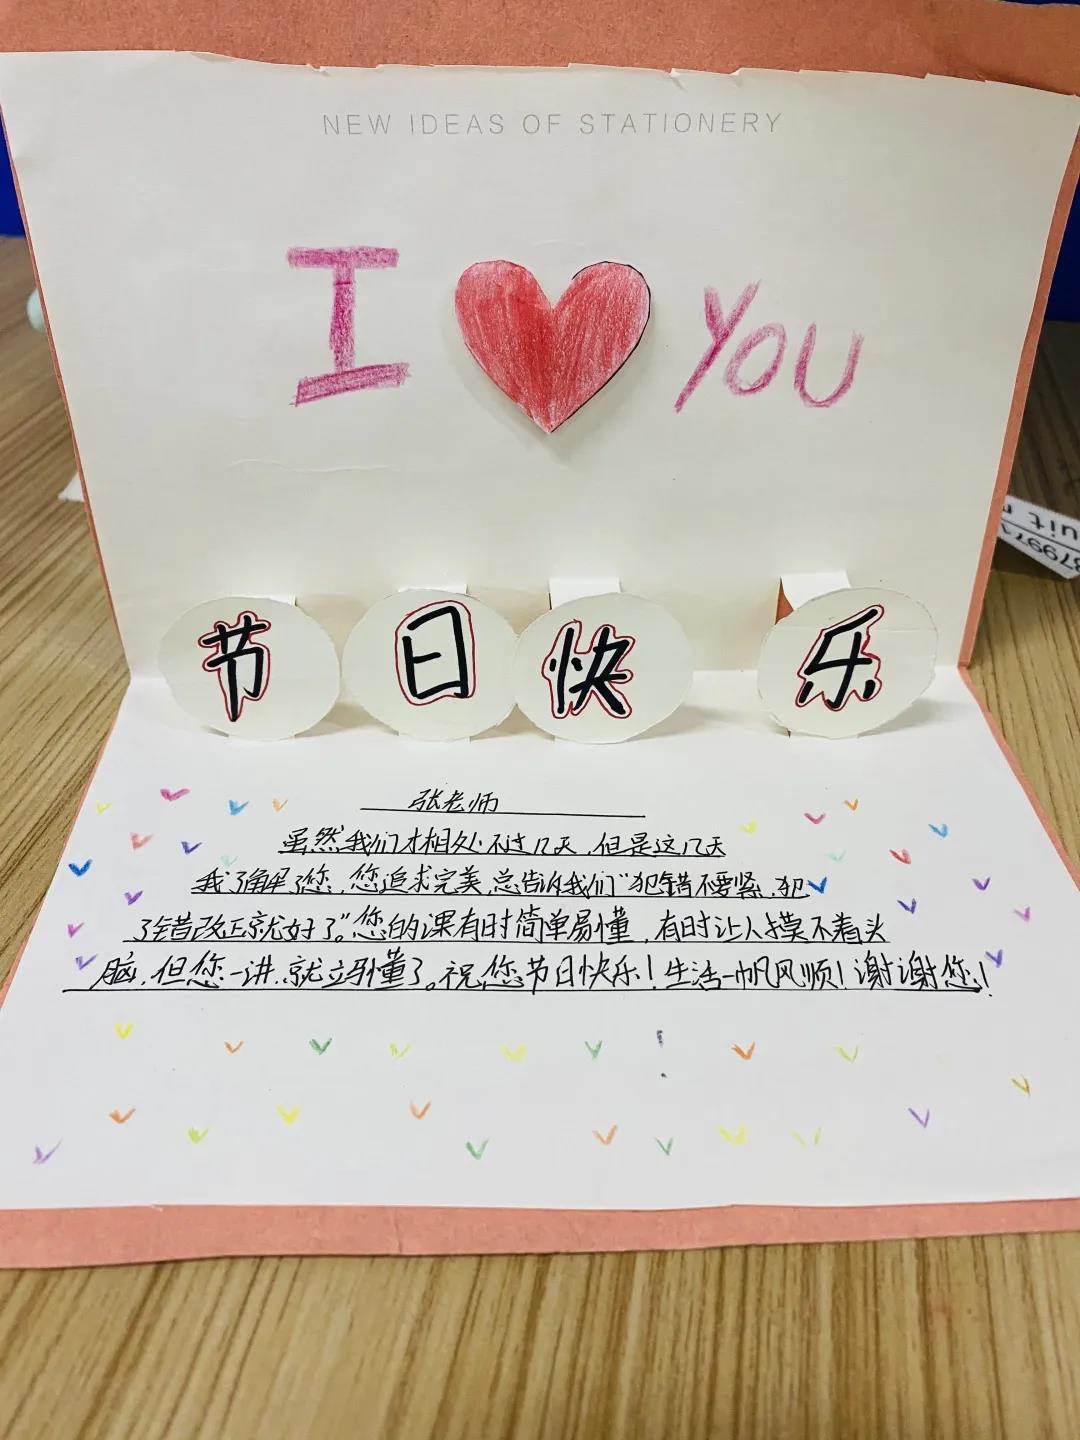 NEW IDEAS OF STATIONERY
I YOU
节日快乐
张老师
虽然我们才相处不过几天,但是这几天
我了解了您,您追求完美,总告诉我们“犯错不要紧,犯
了错改正就好了。”您的课有时简单易懂,有时让人摸不着头
脑,但您一讲,就立马懂了。祝您节日快乐!生活一帆风顺!谢谢您!
uit